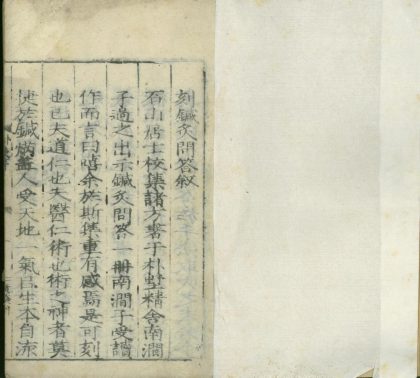 刻鍼灸問答叙
石山居士校集諸方書于朴墅精舎南澗
子過之出示鍼灸問答一冊南澗子受讀
作而言曰嘻余於斯集重有感焉是可刻
也已夫道仁也夫醫仁術也術之神者莫
捷於鍼焫蓋人受天地一氣㠯生本自流